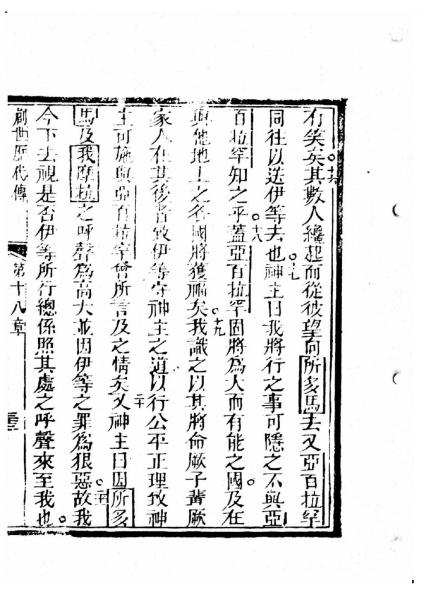 有笑矣。十六其數人纔起而從彼望向所多馬去又亞百拉罕
同往以送伊等去也。十七神主曰我將行之事可隱之不與亞
百拉罕知之乎。十八蓋亞百拉罕固將爲大而有能之國。及在
與他地上之各國將獲福矣。十九我識之以其將命厥子輩厥
家人在其後者致伊等守神主之道以行公平正理致神
主可施與亞百拉罕曾所言及之情矣。二十又神主曰因所多
馬及我摩拉之呼聲爲高大並因伊等之罪爲狠惡。故我
今下去視是否伊等所行總係照其處之呼聲來至我也。
創世歷代傳 第十八章